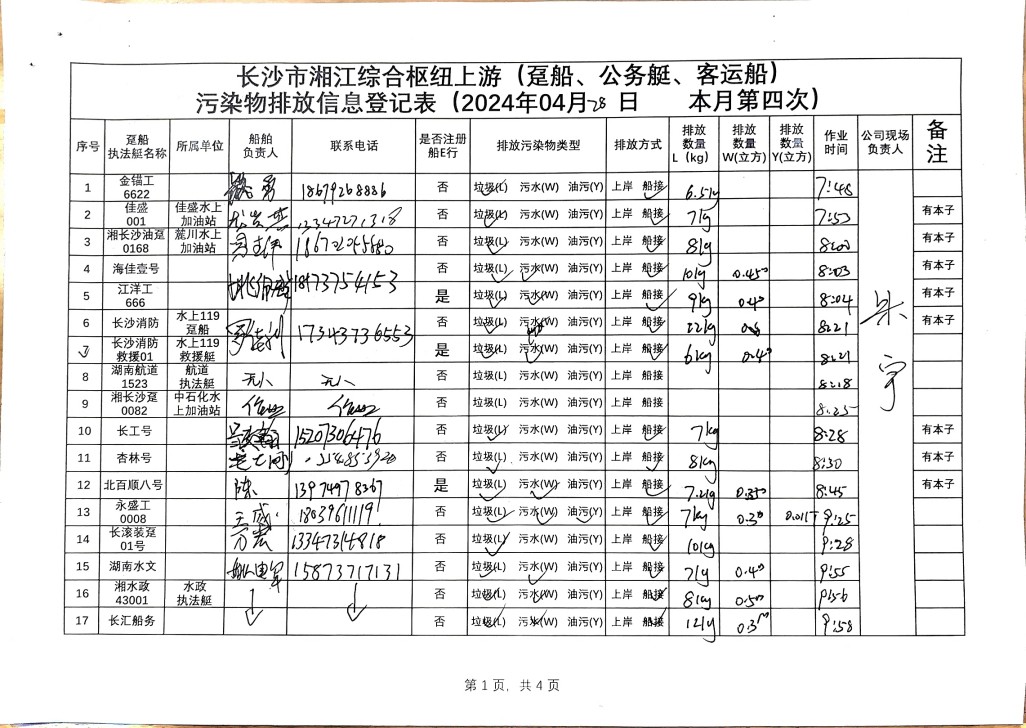 长沙市湘江综合枢纽上游（趸船、公务艇、客运船）
污染物排放信息登记表（2024年04月28日 本月第四次）
序号 趸船执法艇名称 所属单位 船舶负责人 联系电话 是否注册船E行 排放污染物类型 排放方式 排放数量L（kg） 排放数量W(立方) 排放数量Y(立方) 作业时间 公司现场负责人 备注
1 金锚工6622 18679268886 否 垃圾(L) 污水(W) 油污(Y) 上岸 船接 6.5kg 7:48
2 佳盛001 佳盛水上加油站 13347271318 否 垃圾(L) 污水(W) 油污(Y) 上岸 船接 7kg 7:53 有本子
3 湘长沙油趸0168 麓川水上加油站 否 垃圾(L) 污水(W) 油污(Y) 上岸 船接 8kg 8:00 有本子
4 海佳壹号 否 垃圾(L) 污水(W) 油污(Y) 上岸 船接 10kg 0.45 8:03 有本子
5 江洋工666 18973754153 是 垃圾(L) 污水(W) 油污(Y) 上岸 船接 9kg 0.4 8:04 有本子
6 长沙消防 水上119趸船 17343736553 否 垃圾(L) 污水(W) 油污(Y) 上岸 船接 22kg 8:21 有本子
7 长沙消防救援01 水上119救援艇 是 垃圾(L) 污水(W) 油污(Y) 上岸 船接 6kg 0.4 8:21
8 湖南航道1523 航道执法艇 无人 无人 否 垃圾(L) 污水(W) 油污(Y) 上岸 船接 8:18
9 湘长沙趸0082 中石化水上加油站 作业 作业 否 垃圾(L) 污水(W) 油污(Y) 上岸 船接 8:25
10 长工号 15207306476 否 垃圾(L) 污水(W) 油污(Y) 上岸 船接 7kg 8:28 有本子
11 杏林号 否 垃圾(L) 污水(W) 油污(Y) 上岸 船接 8kg 8:30 有本子
12 北百顺八号 陈 13974978367 是 垃圾(L) 污水(W) 油污(Y) 上岸 船接 7.2kg 0.35 8:45 有本子
13 永盛工0008 18039611191 否 垃圾(L) 污水(W) 油污(Y) 上岸 船接 7kg 0.3 0.01 9:25
14 长滚装趸01号 13347314818 否 垃圾(L) 污水(W) 油污(Y) 上岸 船接 10kg 9:28
15 湖南水文 15873717131 否 垃圾(L) 污水(W) 油污(Y) 上岸 船接 7kg 0.4 9:55
16 湘水政43001 水政执法艇 否 垃圾(L) 污水(W) 油污(Y) 上岸 船接 8kg 0.5 9:56
17 长汇船务 否 垃圾(L) 污水(W) 油污(Y) 上岸 船接 12kg 0.3 9:58
第 1 页，共 4 页